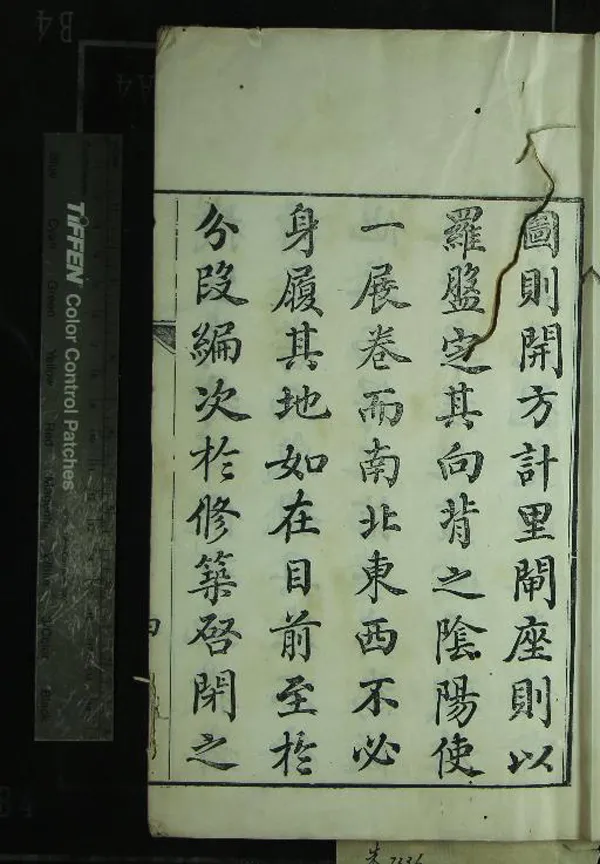 圖則開方計里閘座則以
羅盤定其向背之陰陽使
一展卷而南北東西不必
身履其地如在目前至於
分段編次於修築啓閉之
TIFFEN Color Control Patches